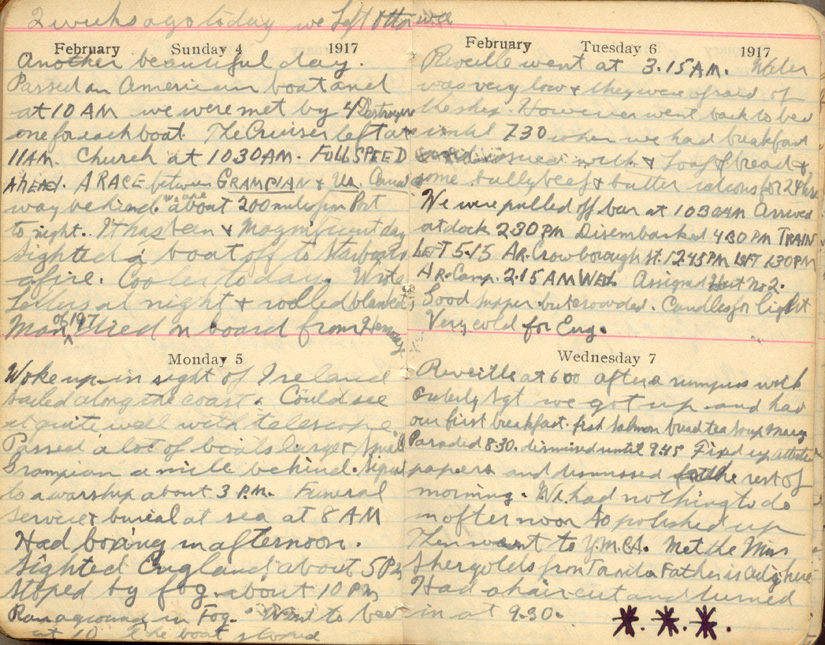 2 weeks ago today we Left Ottawa
February Sunday 4 1917
Another beautiful day.
Passed an American boat and
at 10 AM we were met by 4 Destroyers
one for each boat. The Cruiser left at
11 AM. Church at 1030 AM. FULL SPEED
AHEAD. A RACE between GRAMPIAN & Us.
way behind. We are about 200 miles from Port
to night. It has been a Magnificent day
Sighted a boat off to Starboard
afire. Cooler today. Wrote
Letters at night & rolled blankets
Man of 197 died on board from
Monday 5
Woke up in sight of Ireland
Sailed along the coast. Could see
it quite well with telescope
Passed a lot of boats large & small
Grampian a mile behind. Signal
to a warship about 3 P.M. Funeral
Service & burial at sea at 8 AM
Had boxing in afternoon.
Sighted England about 5 PM
Stoped by fog about 10 PM
Ran aground in Fog. Went to bed
at 10 The boat stoped
February Tuesday 6 1917
Reveille went at 3.15 AM. Water
was very low & they were afraid of
the ship. However went back to bed
until 730 when we had breakfast
issued with & Loaf of bread &
some bullybeef & butter rations for 24 hrs
We were pulled off bar at 1030 AM Arrived
at dock 230 PM Disembarked 430 PM TRAIN
LEFT 5.15 AR. Crowborough St. 1245 PM LEFT 130 PM
AR. Camp. 2.15 AM WED. Assigned Hut No 2.
Good supper but crowded. Candles for light
Very cold for Eng.
Wednesday 7
Reveille at 600 after a rumpus with
orderly Sgt we got up and had
our first breakfast. fish Salmon bread tea soup
Paraded 830. dismissed until 9.45 Fixed up
papers and dismissed the rest of
morning. We had nothing to do
in afternoon so polished up
Then went to Y.M.C.A. Met the Miss
Shergolds from Father is
Had a hair cut and turned
in at 9.30.